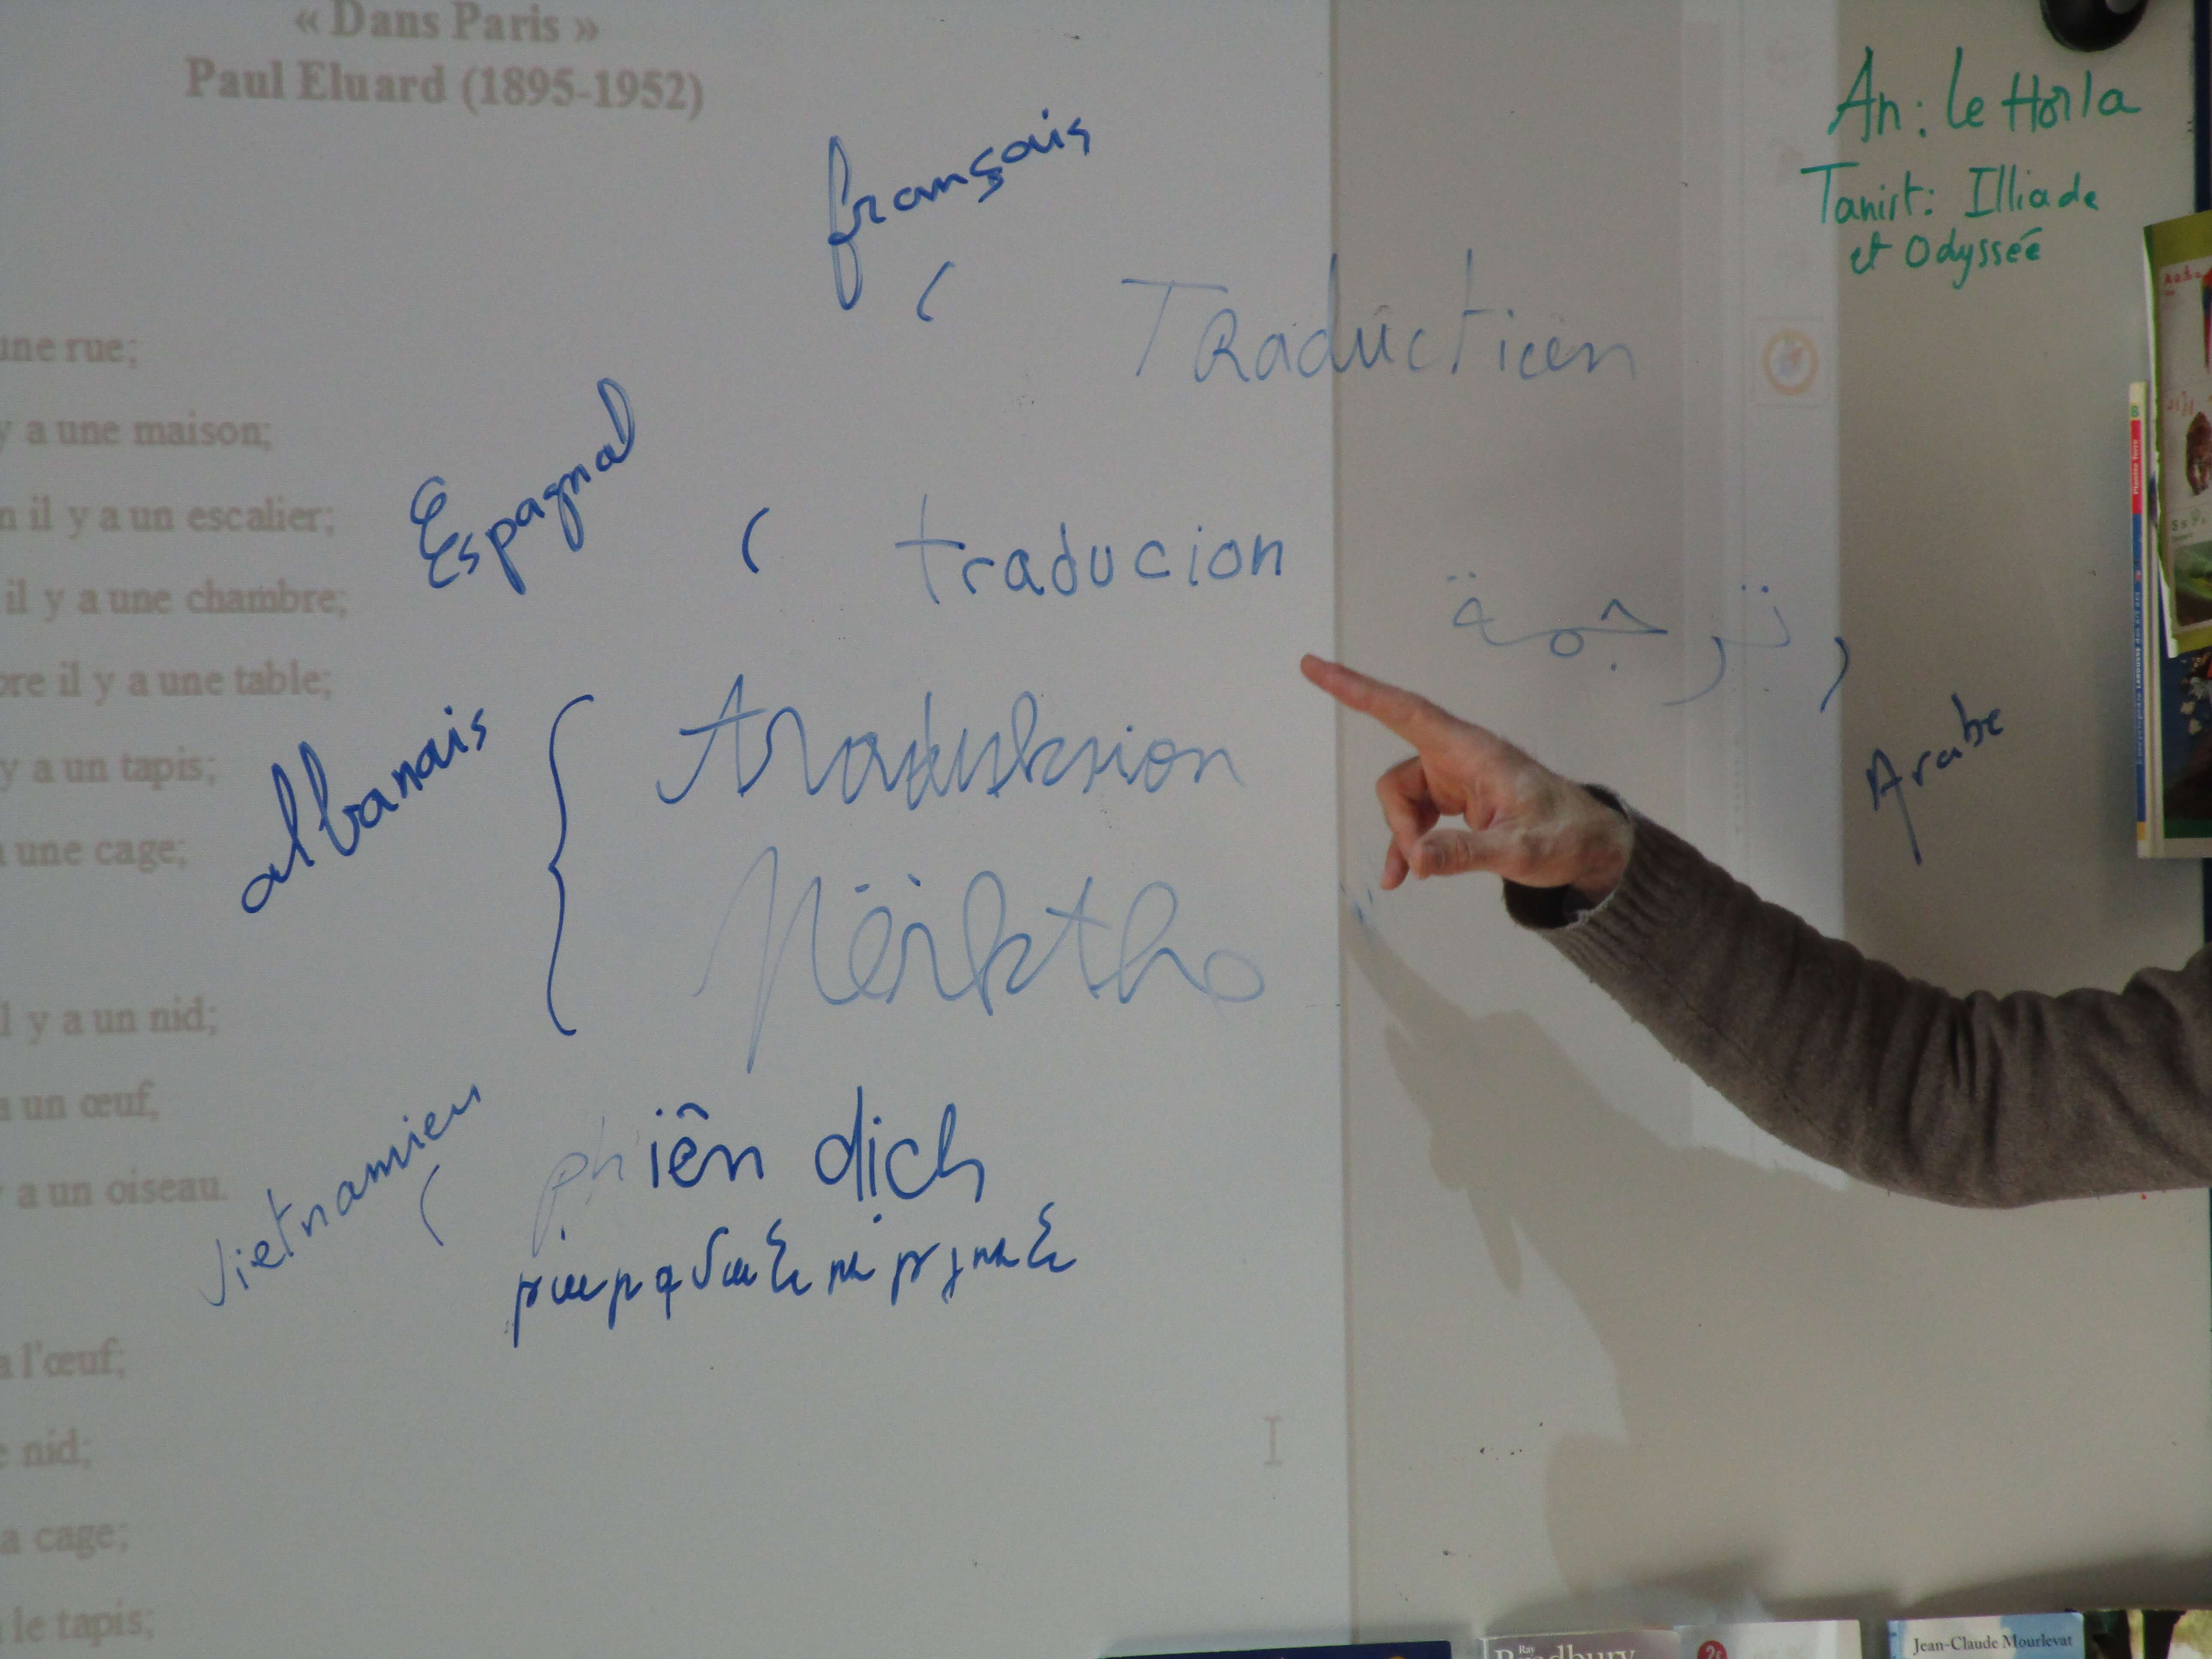 « Dans Paris »
Paul Eluard (1895-1952)
An: Le Horla
Tanirt: Illiade
et Odyssée
français
( Traduction
une rue;
y a une maison;
il y a un escalier;
il y a une chambre;
il y a une table;
y a un tapis;
une cage;
y a un nid;
un œuf,
a un oiseau.
l'œuf;
nid;
cage;
le tapis;
Espagnol ( traducion
ترجمة
Arabe
albanais { traduksion
Përktho
vietnamien ( phiên dich
Jean-Claude Mourlevat
Ray
Bradbury